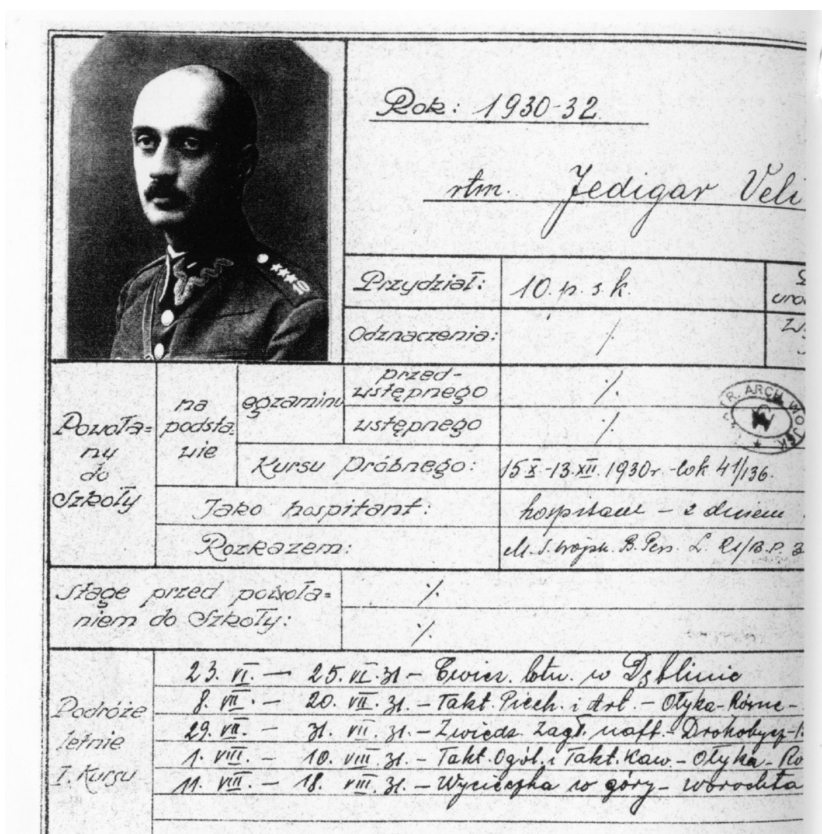 Rok: 1930-32.
rtm. Jedigar Veli
Przydział: 10. p. s. k.
Odznaczenia: ./.
Powoła=
ny
do
Szkoły
na
podsta=
wie
egzaminu
przed-
wstępnego ./.
wstępnego ./.
Kursu Próbnego: 15 X -13. XII. 1930r. - lok 41/136.
Jako hospitant: hospitant - z dniem
Rozkazem: M. S. Wojsk. B. Pers. L.
R. ARCH. WOJSK
Stage przed powoła=
niem do Szkoły: ./.
./.
Podróże
letnie
I. Kursu
23. VI. — 25. VI. 31 - Ćwicz. lotn. w Dęblinie
8. VII. — 20. VII. 31. - Takt. Piech. i Art. - Ołyka - Równe -
29. VII. — 31. VII. 31. - Zwiedz. Zagł. naft. - Drohobycz -
1. VIII. — 10. VIII. 31. - Takt. Ogól. i Takt. Kaw. - Ołyka - Ro
11. VIII — 18. VIII. 31. - Wycieczka w góry - Worochta